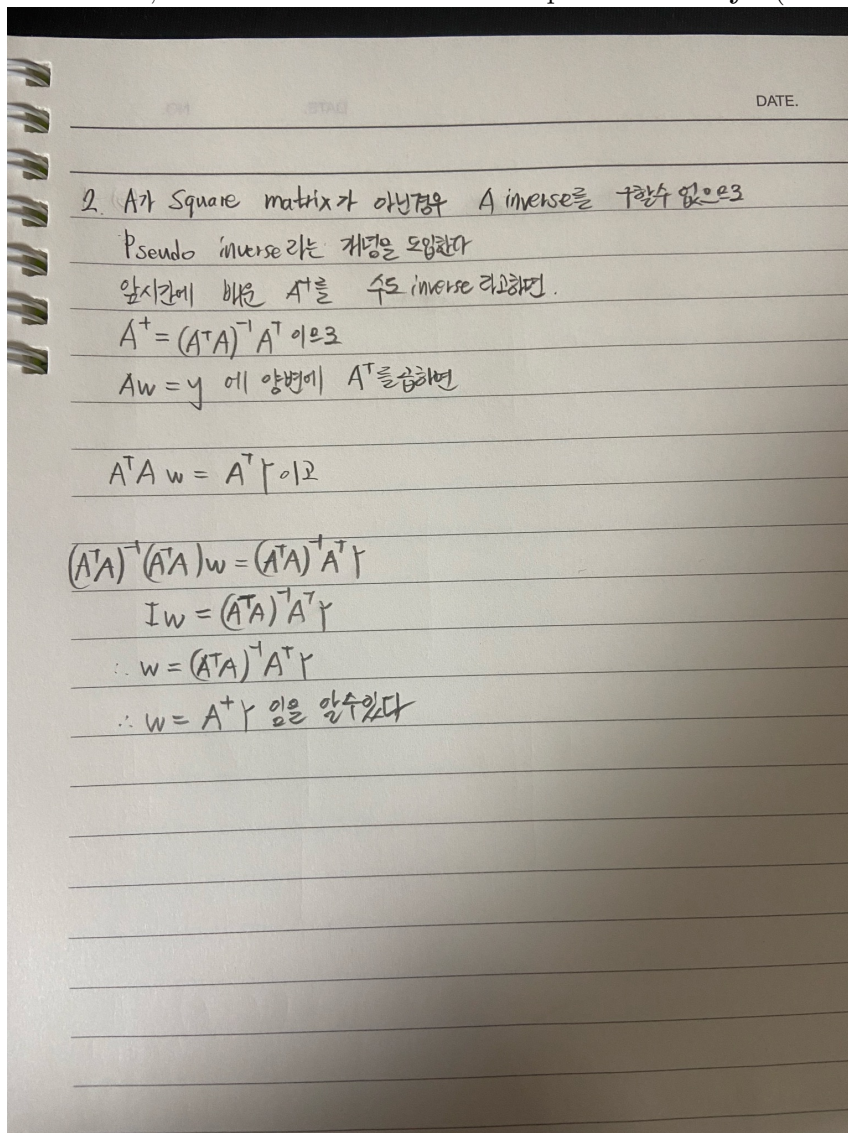 DATE.
2. A가 Square matrix가 아닌경우 A inverse를 구할수 없으므로
Pseudo inverse라는 개념을 도입한다
앞시간에 배운 A⁺를 수도 inverse 라고하면.
A⁺ = (AᵀA)⁻¹Aᵀ 이므로
Aw = y 에 양변에 Aᵀ를 곱하면
AᵀA w = Aᵀ y 이고
(AᵀA)⁻¹(AᵀA)w = (AᵀA)⁻¹Aᵀ y
I w = (AᵀA)⁻¹Aᵀ y
∴ w = (AᵀA)⁻¹Aᵀ y
∴ w = A⁺ y 임을 알수있다